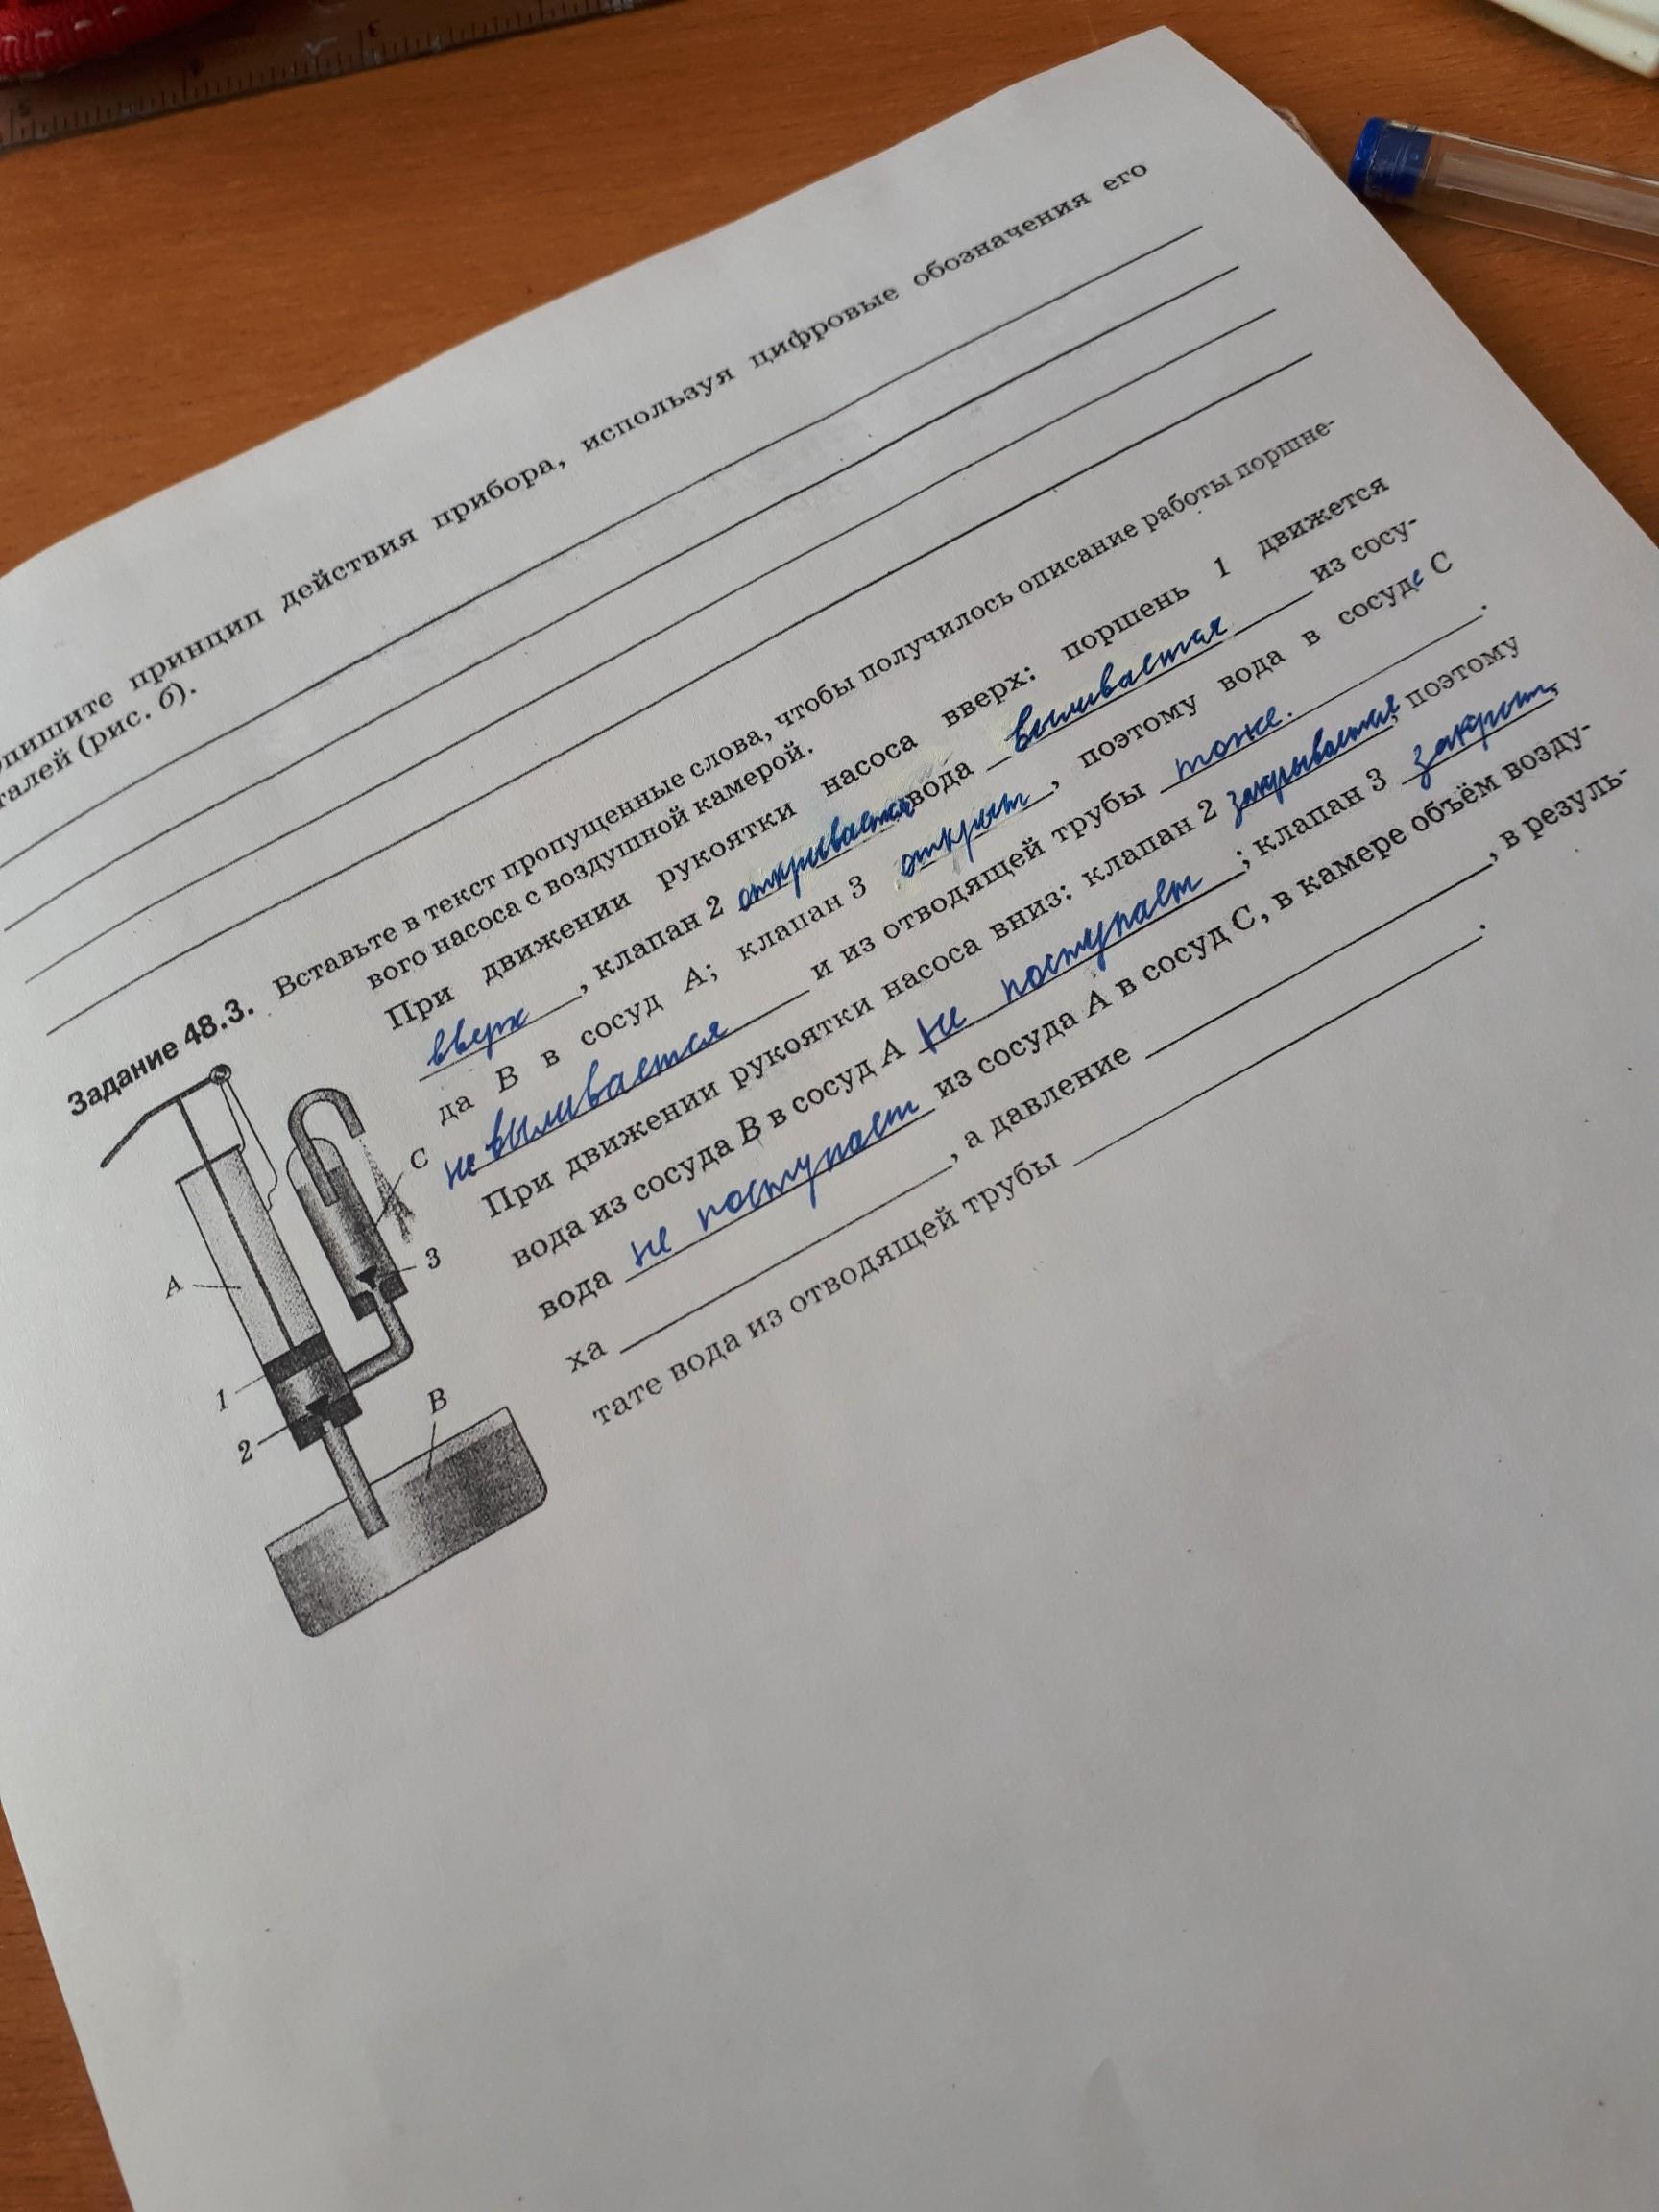 пишите принцип действия прибора, используя цифровые обозначения его
талей (рис. б).
Задание 48.3. Вставьте в текст пропущенные слова, чтобы получилось описание работы поршне-
вого насоса с воздушной камерой.
При движении рукоятки насоса вверх: поршень 1 движется
вверх, клапан 2 открывается вода выливается из сосу-
да B в сосуд A; клапан 3 открыт, поэтому вода в сосуде C
не выливается и из отводящей трубы тоже.
При движении рукоятки насоса вниз: клапан 2 закрывается, поэтому
вода из сосуда B в сосуд A не поступает; клапан 3 закрыт,
вода не поступает из сосуда A в сосуд C, в камере объём возду-
ха , а давление , в резуль-
тате вода из отводящей трубы .
C
A
3
1
B
2